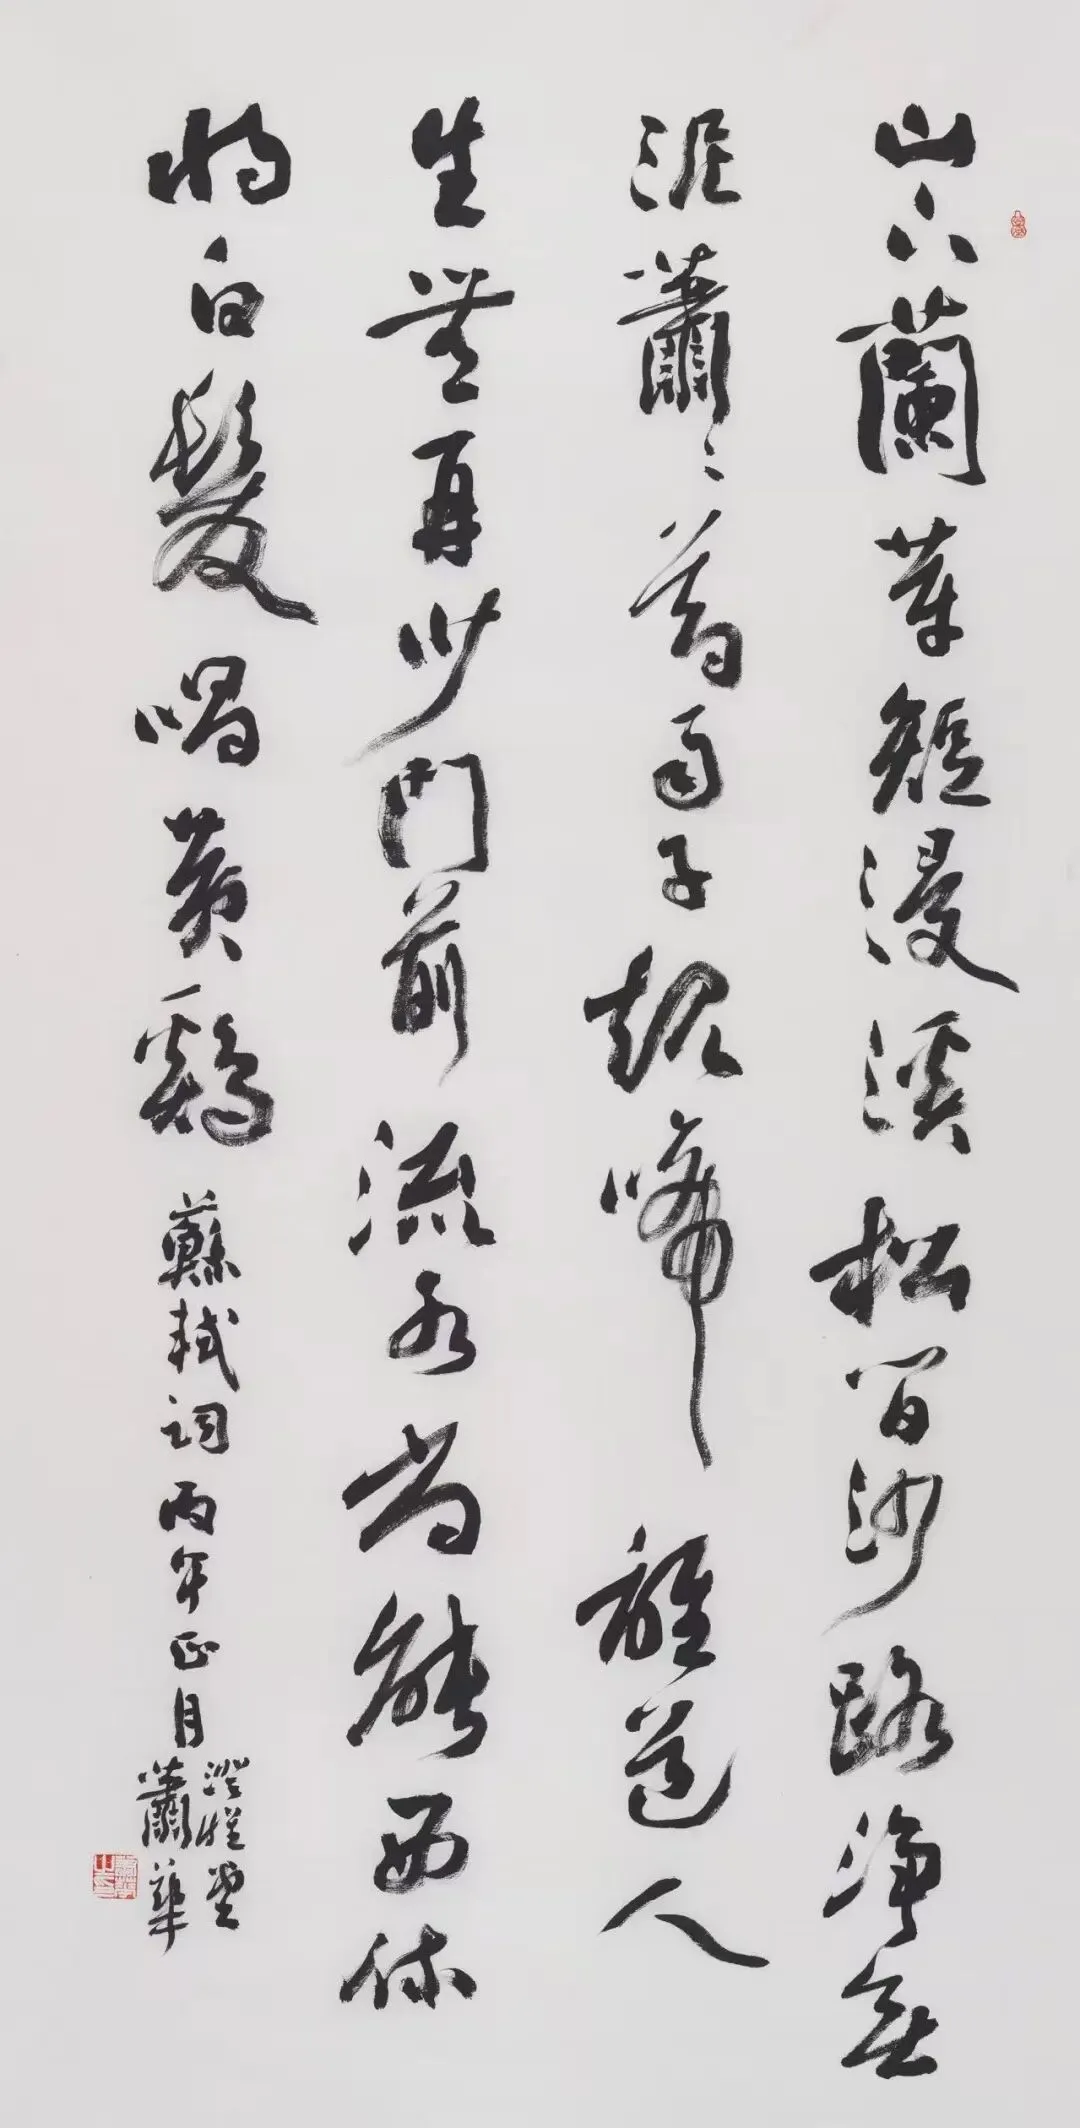 山下蘭芽短浸溪松間沙路淨無
泥蕭〻暮雨子規啼誰道人
生無再少門前流水尚能西休
將白髮唱黃鷄 蘇軾詞丙年正月
澄懷堂
蕭華